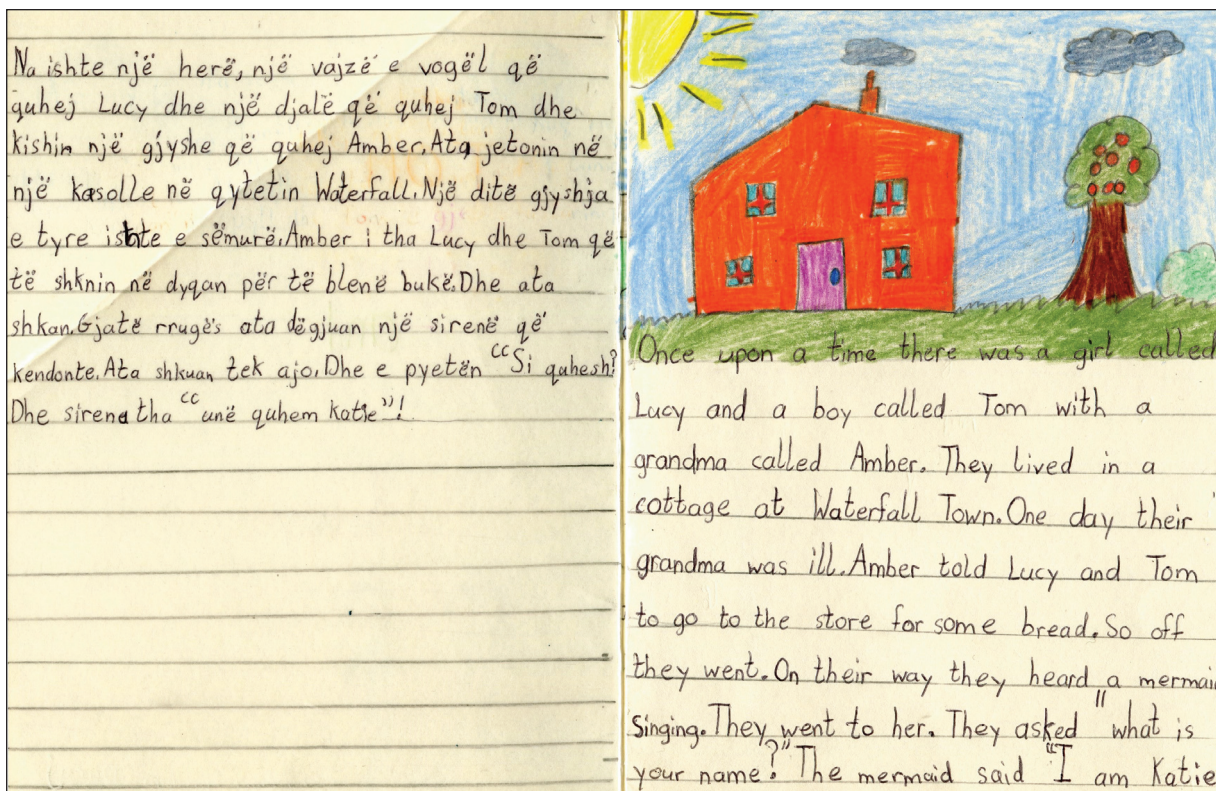 Na ishte një herë, një vajzë e vogël që
quhej Lucy dhe një djalë që quhej Tom dhe
kishin një gjyshe që quhej Amber. Ata jetonin në
një kasolle në qytetin Waterfall. Një ditë gjyshja
e tyre ishte e sëmurë. Amber i tha Lucy dhe Tom që
të shknin në dyqan për të blenë bukë. Dhe ata
shkan. Gjatë rrugës ata dëgjuan një sirenë që
kendonte. Ata shkuan tek ajo. Dhe e pyetën “Si quhesh?
Dhe sirena tha “unë quhem katie”!
Once upon a time there was a girl called
Lucy and a boy called Tom with a
grandma called Amber. They lived in a
cottage at Waterfall Town. One day their
grandma was ill. Amber told Lucy and Tom
to go to the store for some bread. So off
they went. On their way they heard a mermai
singing. They went to her. They asked "what is
your name?" The mermaid said "I am Katie